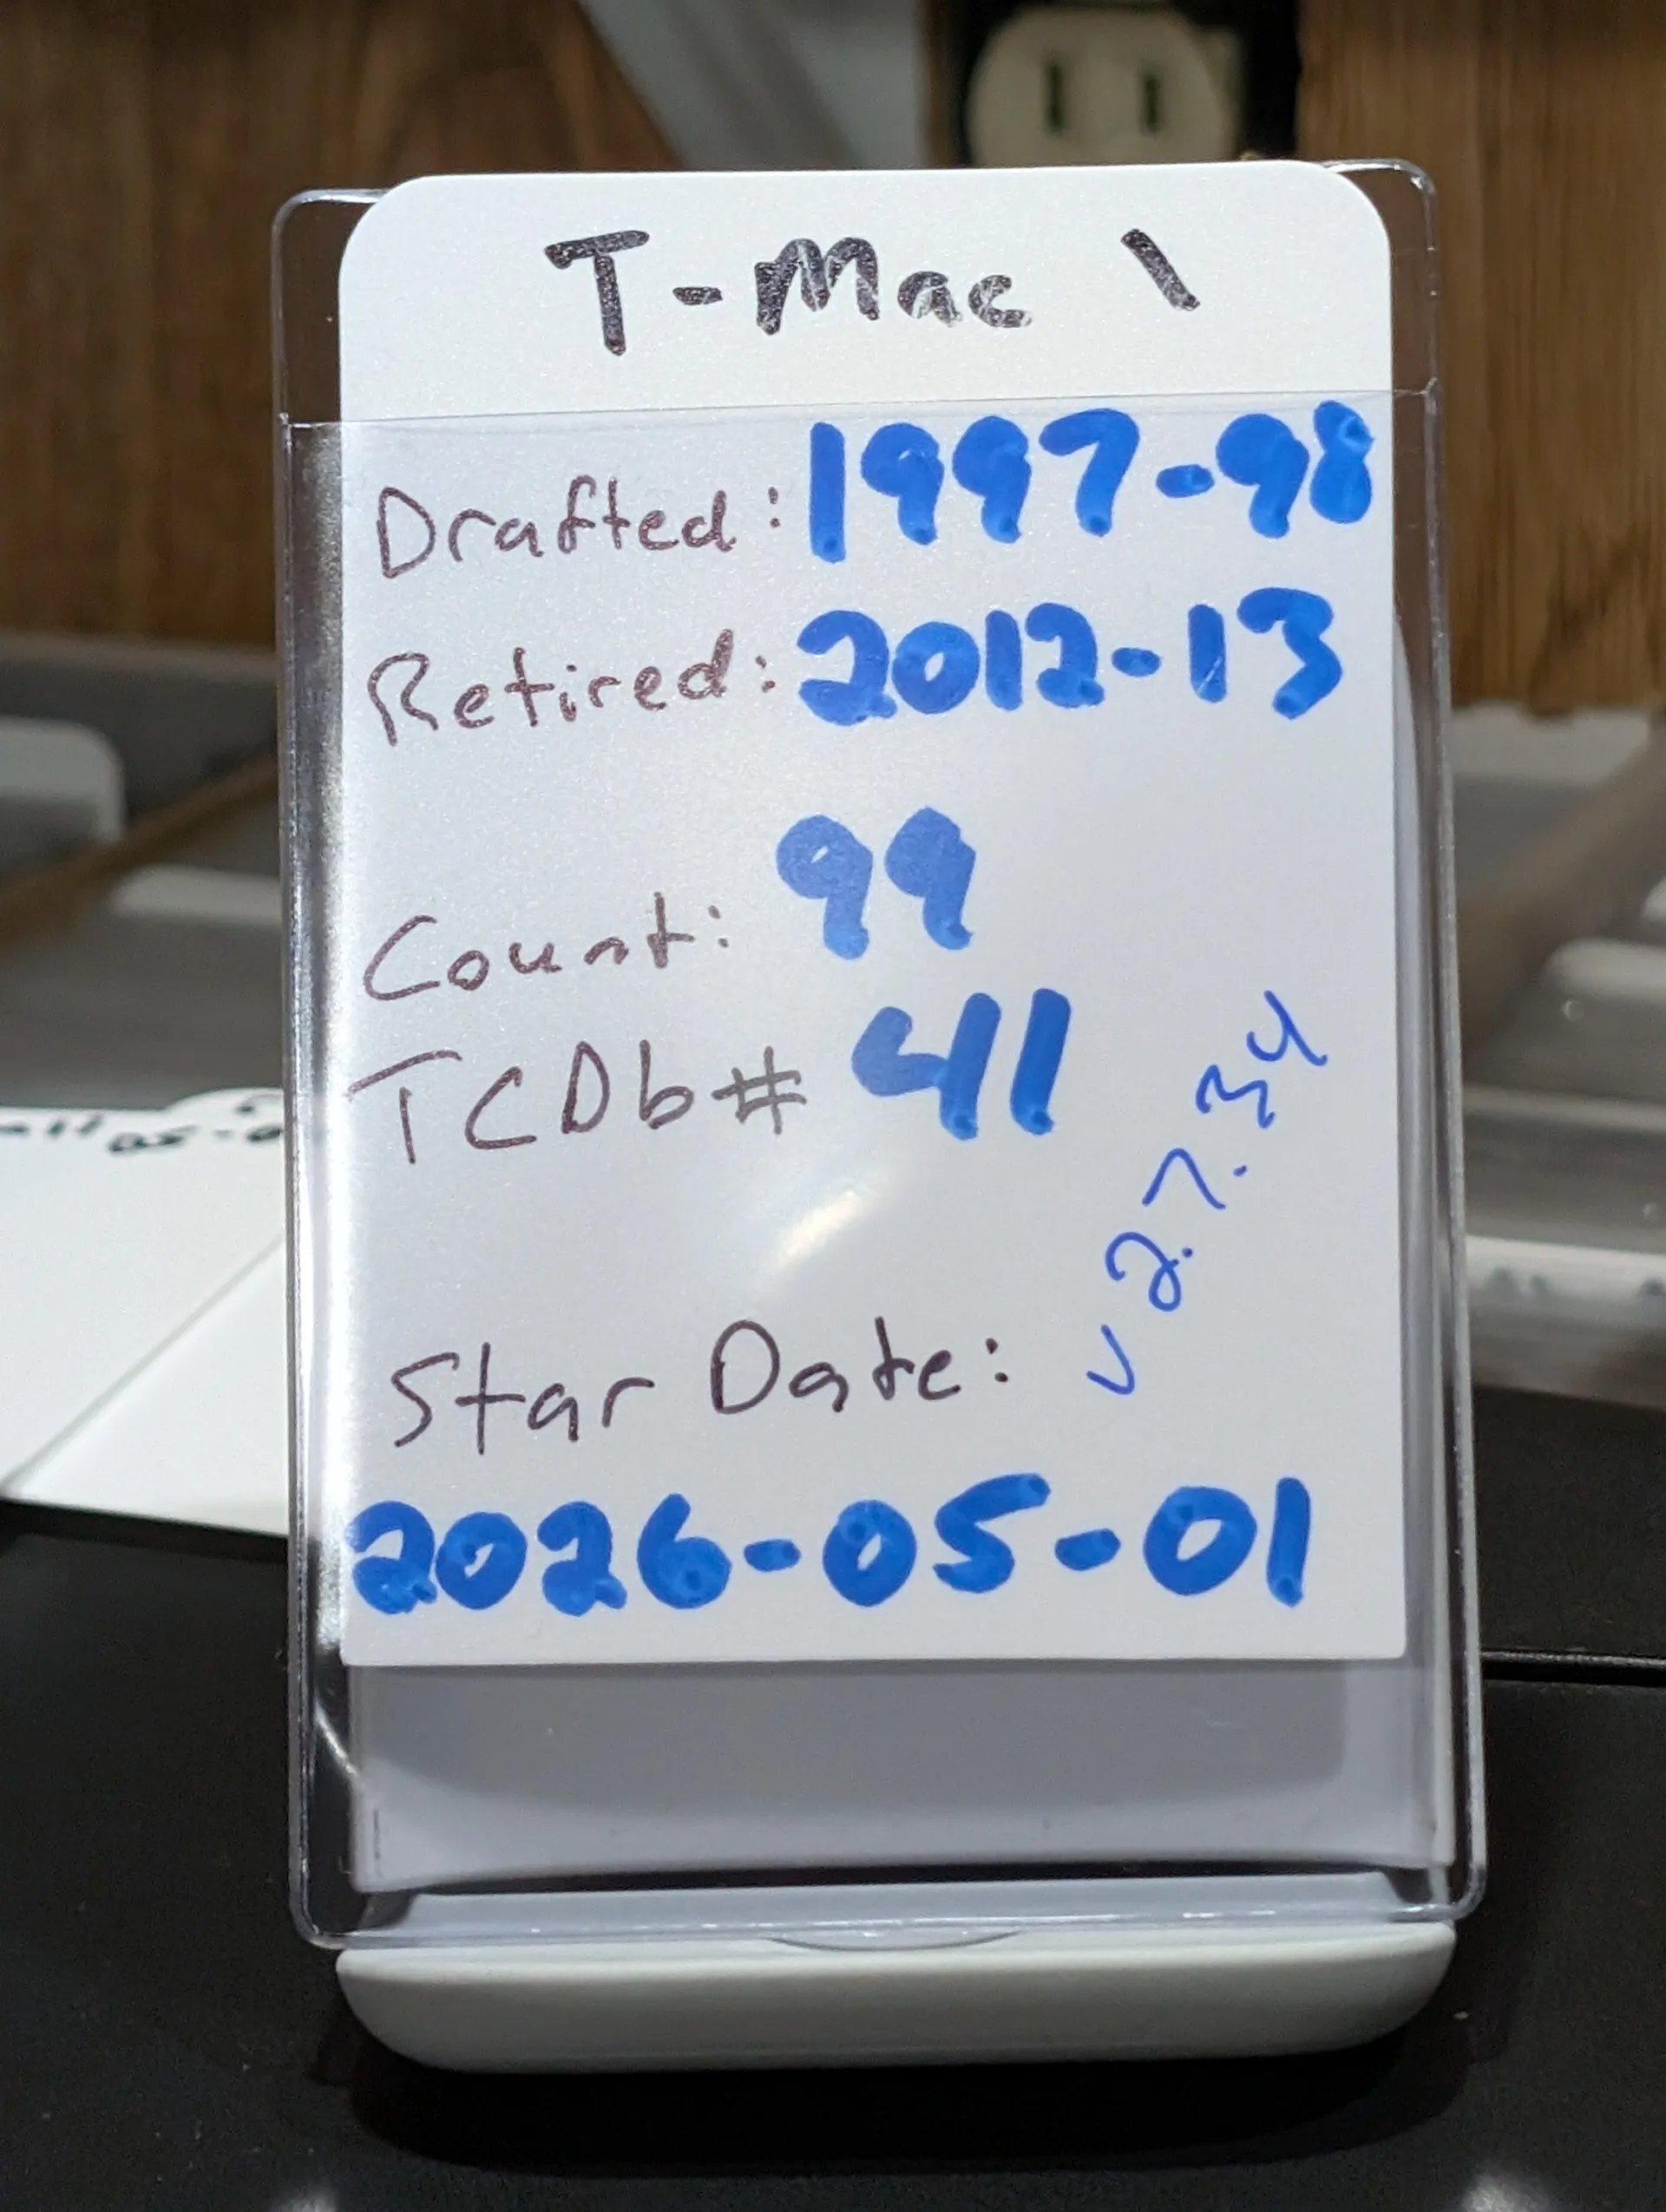 T-Mac \
Drafted: 1997-98
Retired: 2012-13
Count: 99
TCDb# 41
v 2.7.34
Star Date:
2026-05-01